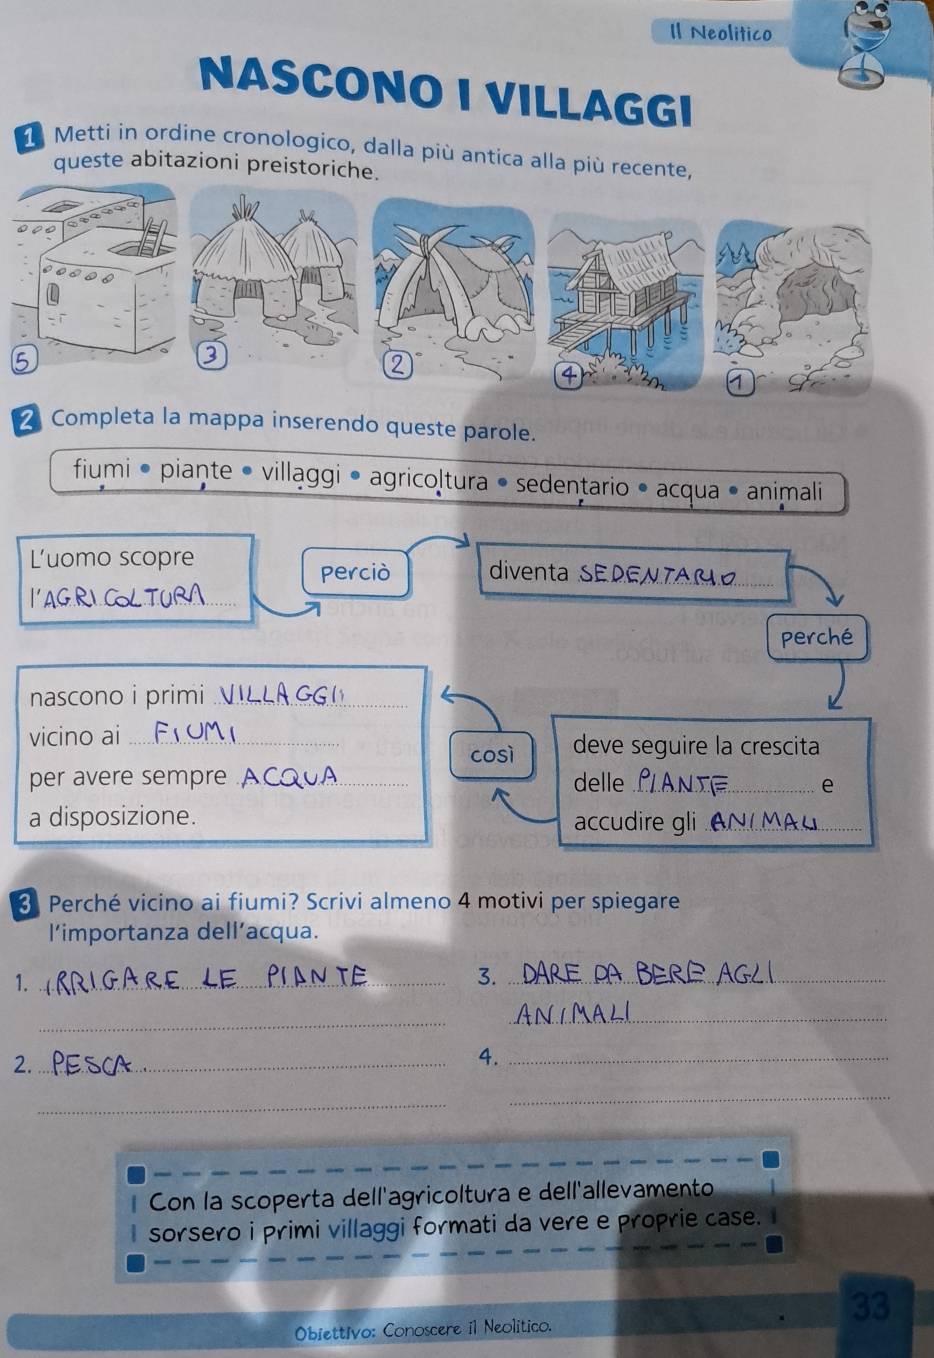 Il Neolitico
NASCONO I VILLAGGI
1 Metti in ordine cronologico, dalla più antica alla più recente,
queste abitazioni preistoriche.
5 3 2 4 1
2 Completa la mappa inserendo queste parole.
fiumi • piante • villaggi • agricoltura • sedentario • acqua • animali
L'uomo scopre
l'AGRICOLTURA
perciò
diventa SEDENTARIO
perché
deve seguire la crescita
delle PIANTE e
accudire gli ANIMALI
così
nascono i primi VILLAGGI
vicino ai FIUMI
per avere sempre ACQUA
a disposizione.
3 Perché vicino ai fiumi? Scrivi almeno 4 motivi per spiegare
l'importanza dell'acqua.
1. IRRIGARE LE PIANTE
2. PESCA
3. DARE DA BERE AGLI
ANIMALI
4.
Con la scoperta dell'agricoltura e dell'allevamento
sorsero i primi villaggi formati da vere e proprie case.
33
Obiettivo: Conoscere il Neolitico.